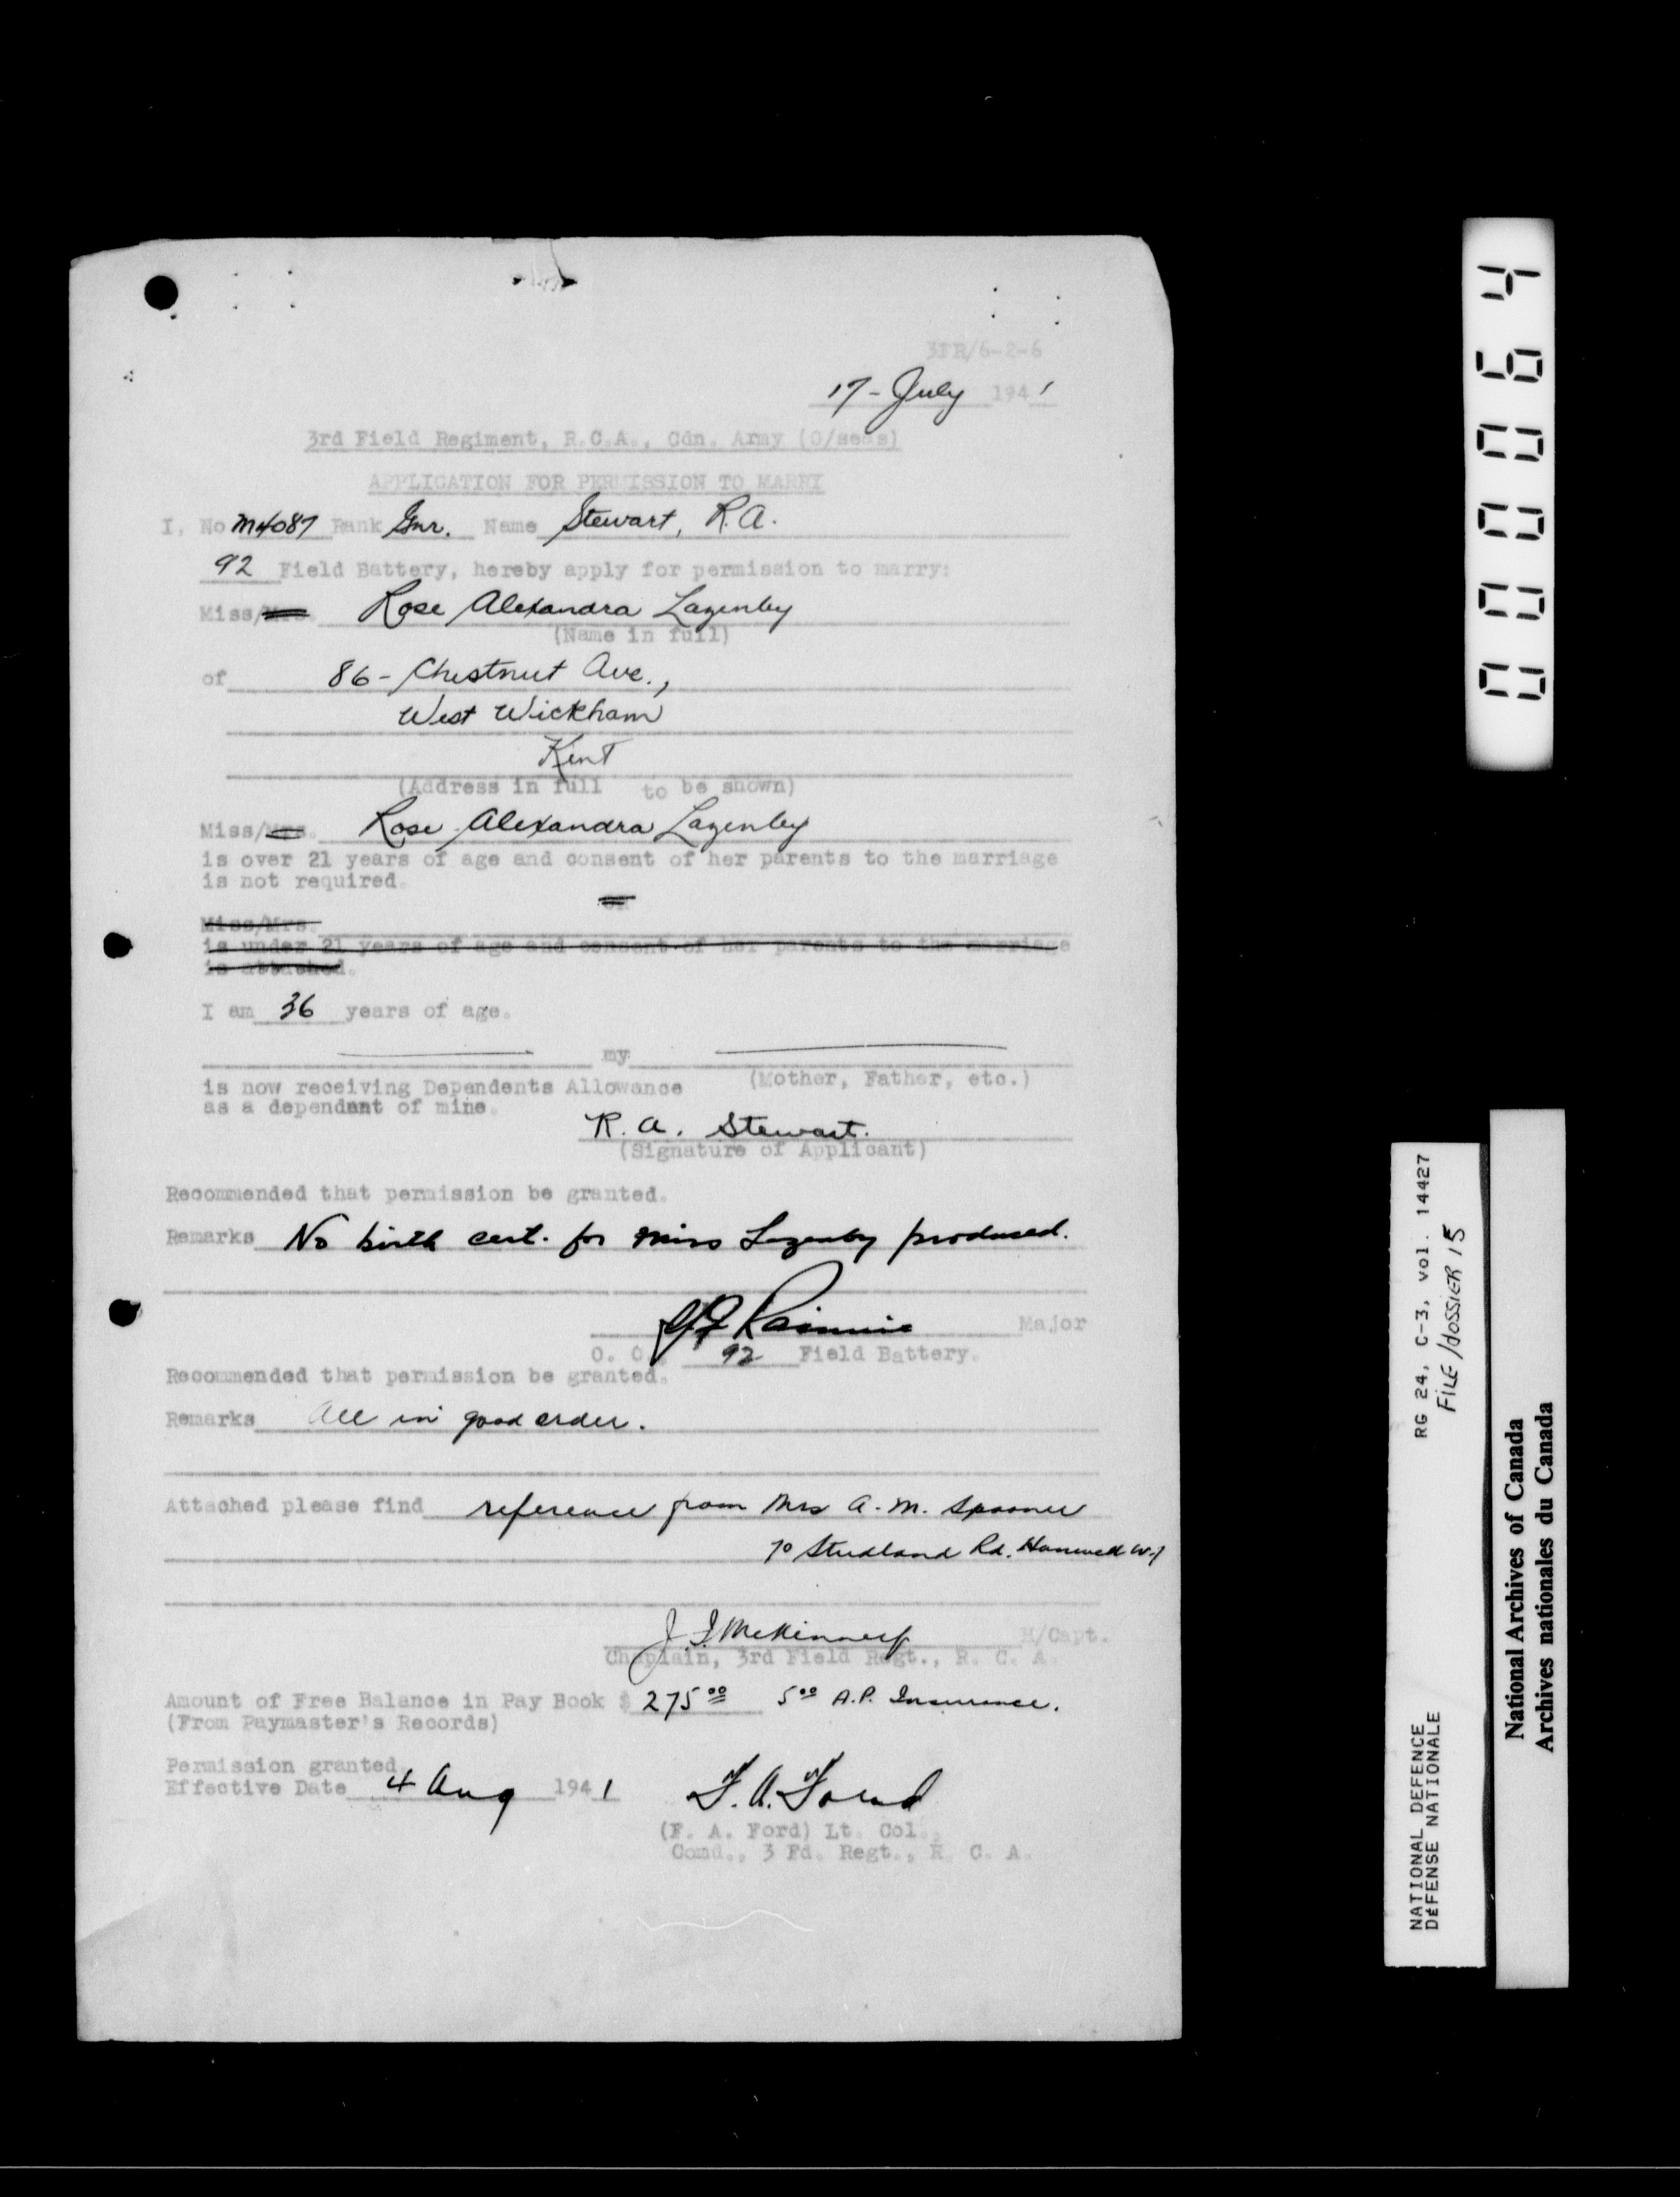 3FR/6-2-6
17 - July 1941
3rd Field Regiment, R.C.A., Cdn. Army (O/seas)
APPLICATION FOR PERMISSION TO MARRY
I, No M4087 Rank Gnr. Name Stewart, R.A.
92 Field Battery, hereby apply for permission to marry:
Miss/Mrs. Rose Alexandra Lazenby
(Name in full)
of 86 - Chestnut Ave.,
West Wickham
Kent
(Address in full to be shown)
Miss/Mrs. Rose Alexandra Lazenby
is over 21 years of age and consent of her parents to the marriage
is not required.
OR
Miss/Mrs.
is under 21 years of age and consent of her parents to the marriage
is attached.
I am 36 years of age.
my
(Mother, Father, etc.)
is now receiving Dependents Allowance
as a dependant of mine.
R. A. Stewart.
(Signature of Applicant)
Recommended that permission be granted.
Remarks No birth cert. for Miss Lazenby produced.
Major
O. C. 92 Field Battery.
Recommended that permission be granted.
Remarks All in good order.
Attached please find reference from Mrs A. M. Spooner
70 Studland Rd. Hanwell W.7
J. I. McKinney H/Capt.
Chaplain, 3rd Field Regt., R. C. A.
Amount of Free Balance in Pay Book $ 275 00 5 00 A.P. Insurance.
(From Paymaster's Records)
Permission granted
Effective Date 4 Aug 1941 F. A. Ford
(F. A. Ford) Lt. Col.,
Comd., 3 Fd. Regt., R. C. A.
000064
RG 24, C-3, vol. 14427
FILE/DOSSIER 15
NATIONAL DEFENCE
DÉFENSE NATIONALE
National Archives of Canada
Archives nationales du Canada